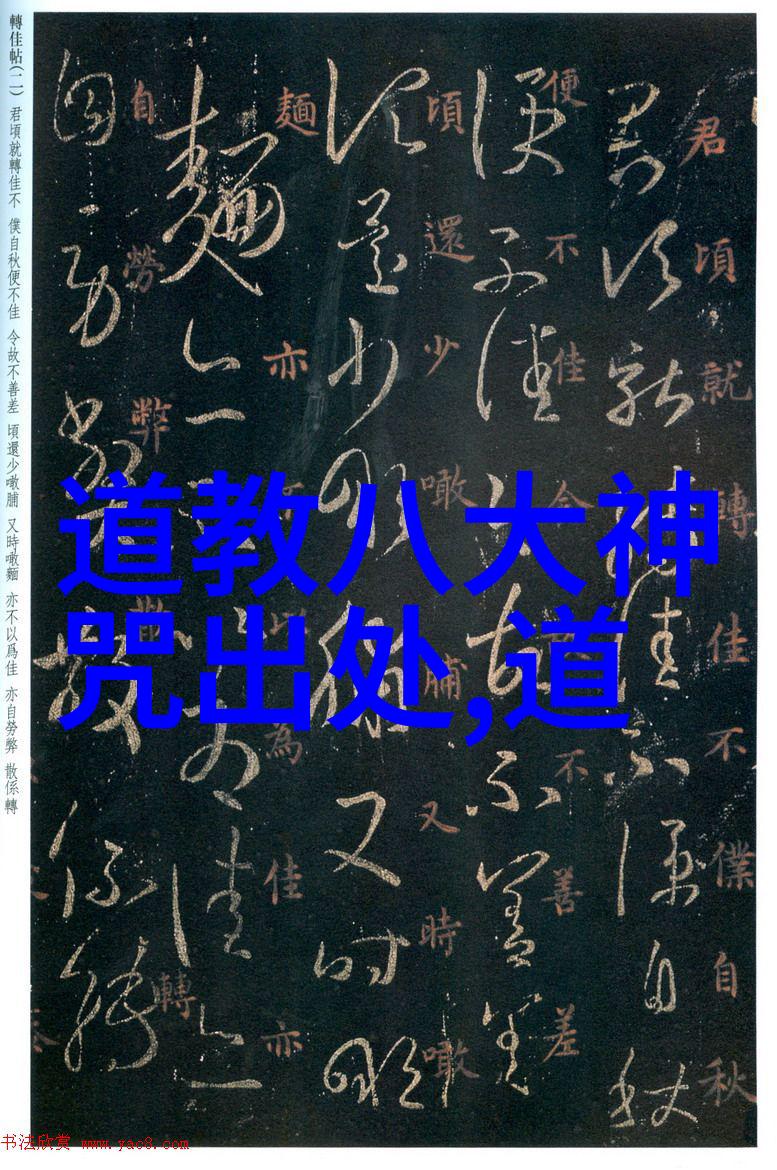 轉佳帖(二) 君頃就轉佳不 僕自秋便不佳 令故不善差 頃還少噉脯 又時噉麵 亦不以爲佳 亦自勞弊 散係轉
君頃就轉佳不僕自秋
便不佳令故不善差
頃還少噉脯又時噉
麵亦不以為佳亦
自勞弊散係轉
道教八大神
咒出处,道
书法欣赏 www.yac8.com